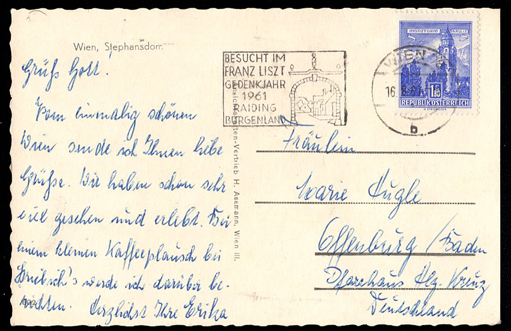 Wien, Stephansdom
Grüß Gott.
Vom einmalig schönen
Wien sende ich Ihnen liebe
Grüße. Wir haben schon sehr
viel gesehen und erlebt. Bei
einem kleinen Kaffeeplausch bei
werde ich darüber be-
richten. Herzlichst Ihre Erika
BESUCHT IM
FRANZ LISZT
GEDENKJAHR
1961
RAIDING
BURGENLAND
WIEN
16
b
REPUBLIK ÖSTERREICH
Karten-Vertrieb H. Wien III.
Fräulein
Marie Kugle
Offenburg/Baden
Pfarrhaus Hlg. Kreuz
Deutschland